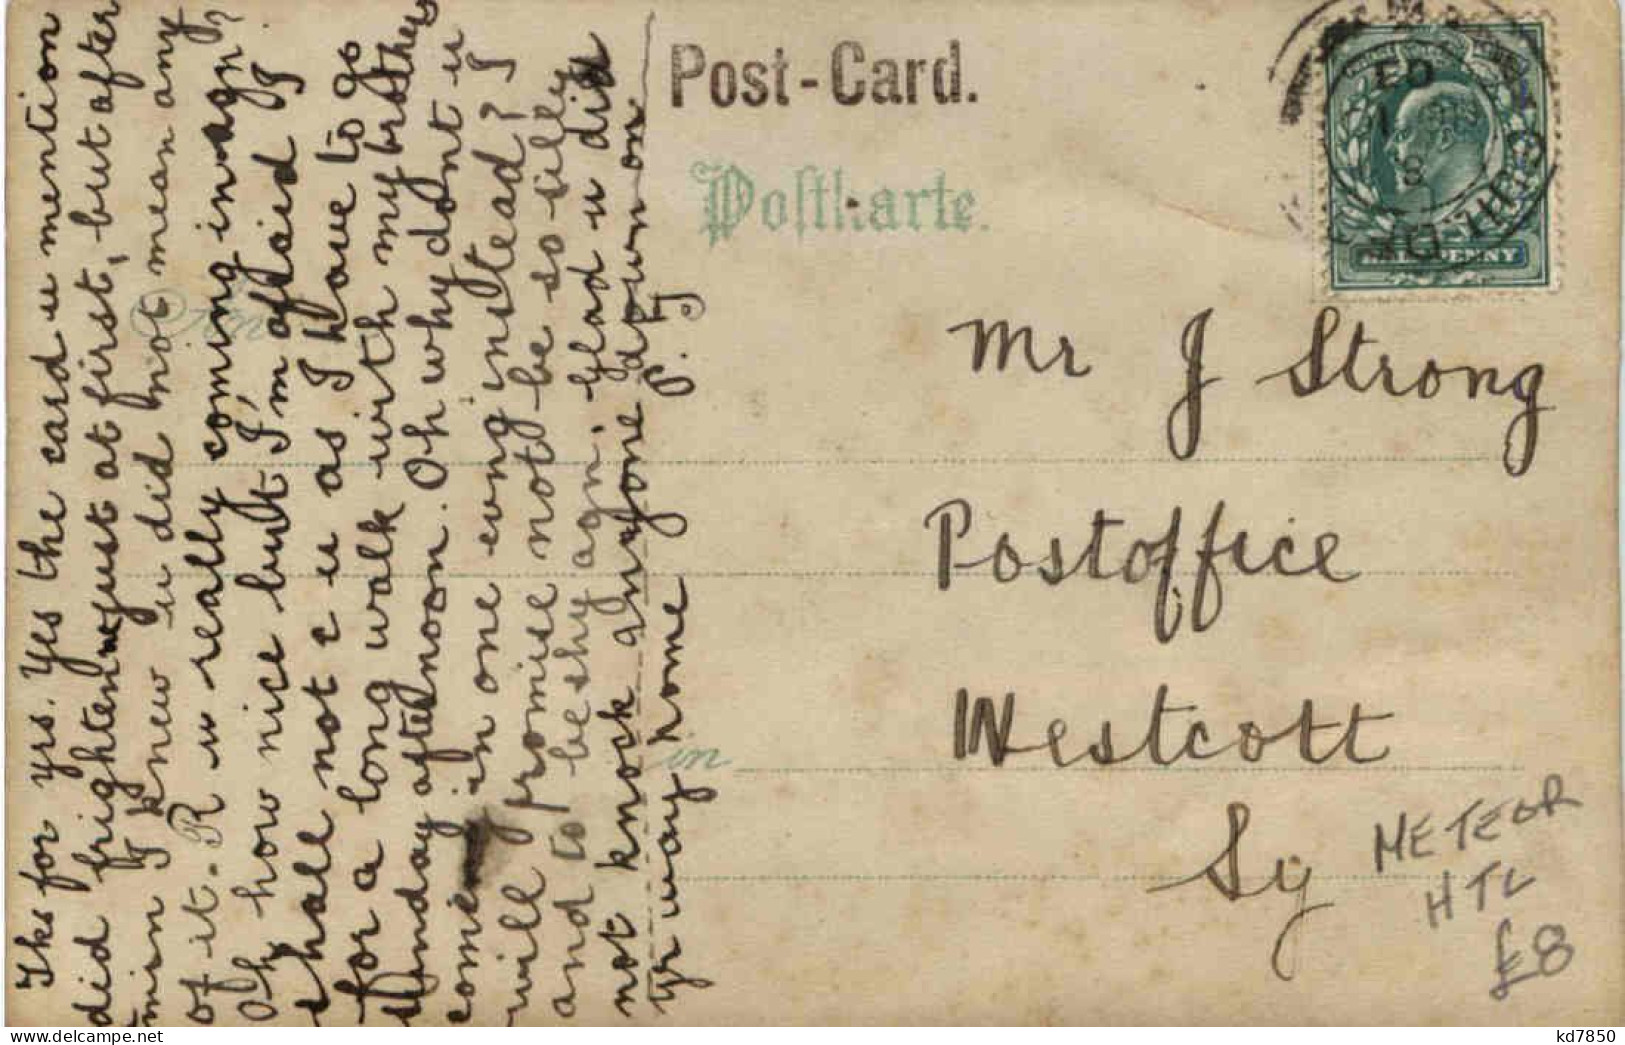 Tks for yrs. Yes the card u mention
did frighten me just at first, but after
1 min I knew u did not mean any
of it. R u really coming in agn?
Oh how nice but I'm afraid I
shall not c u as I have to go
for a long walk with my brothers
Sunday afternoon. Oh why dont u
come in one evng instead? I
will promise not to be so silly
and to be shy agn. glad u did
not knock anyone down on
yr way home P.T.
Post-Card.
Postkarte.
An
in
HALFPENNY
GUILDFORD
Mr J Strong
Postoffice
Westcott
Sy
METEOR
HTL
£8
kd7850